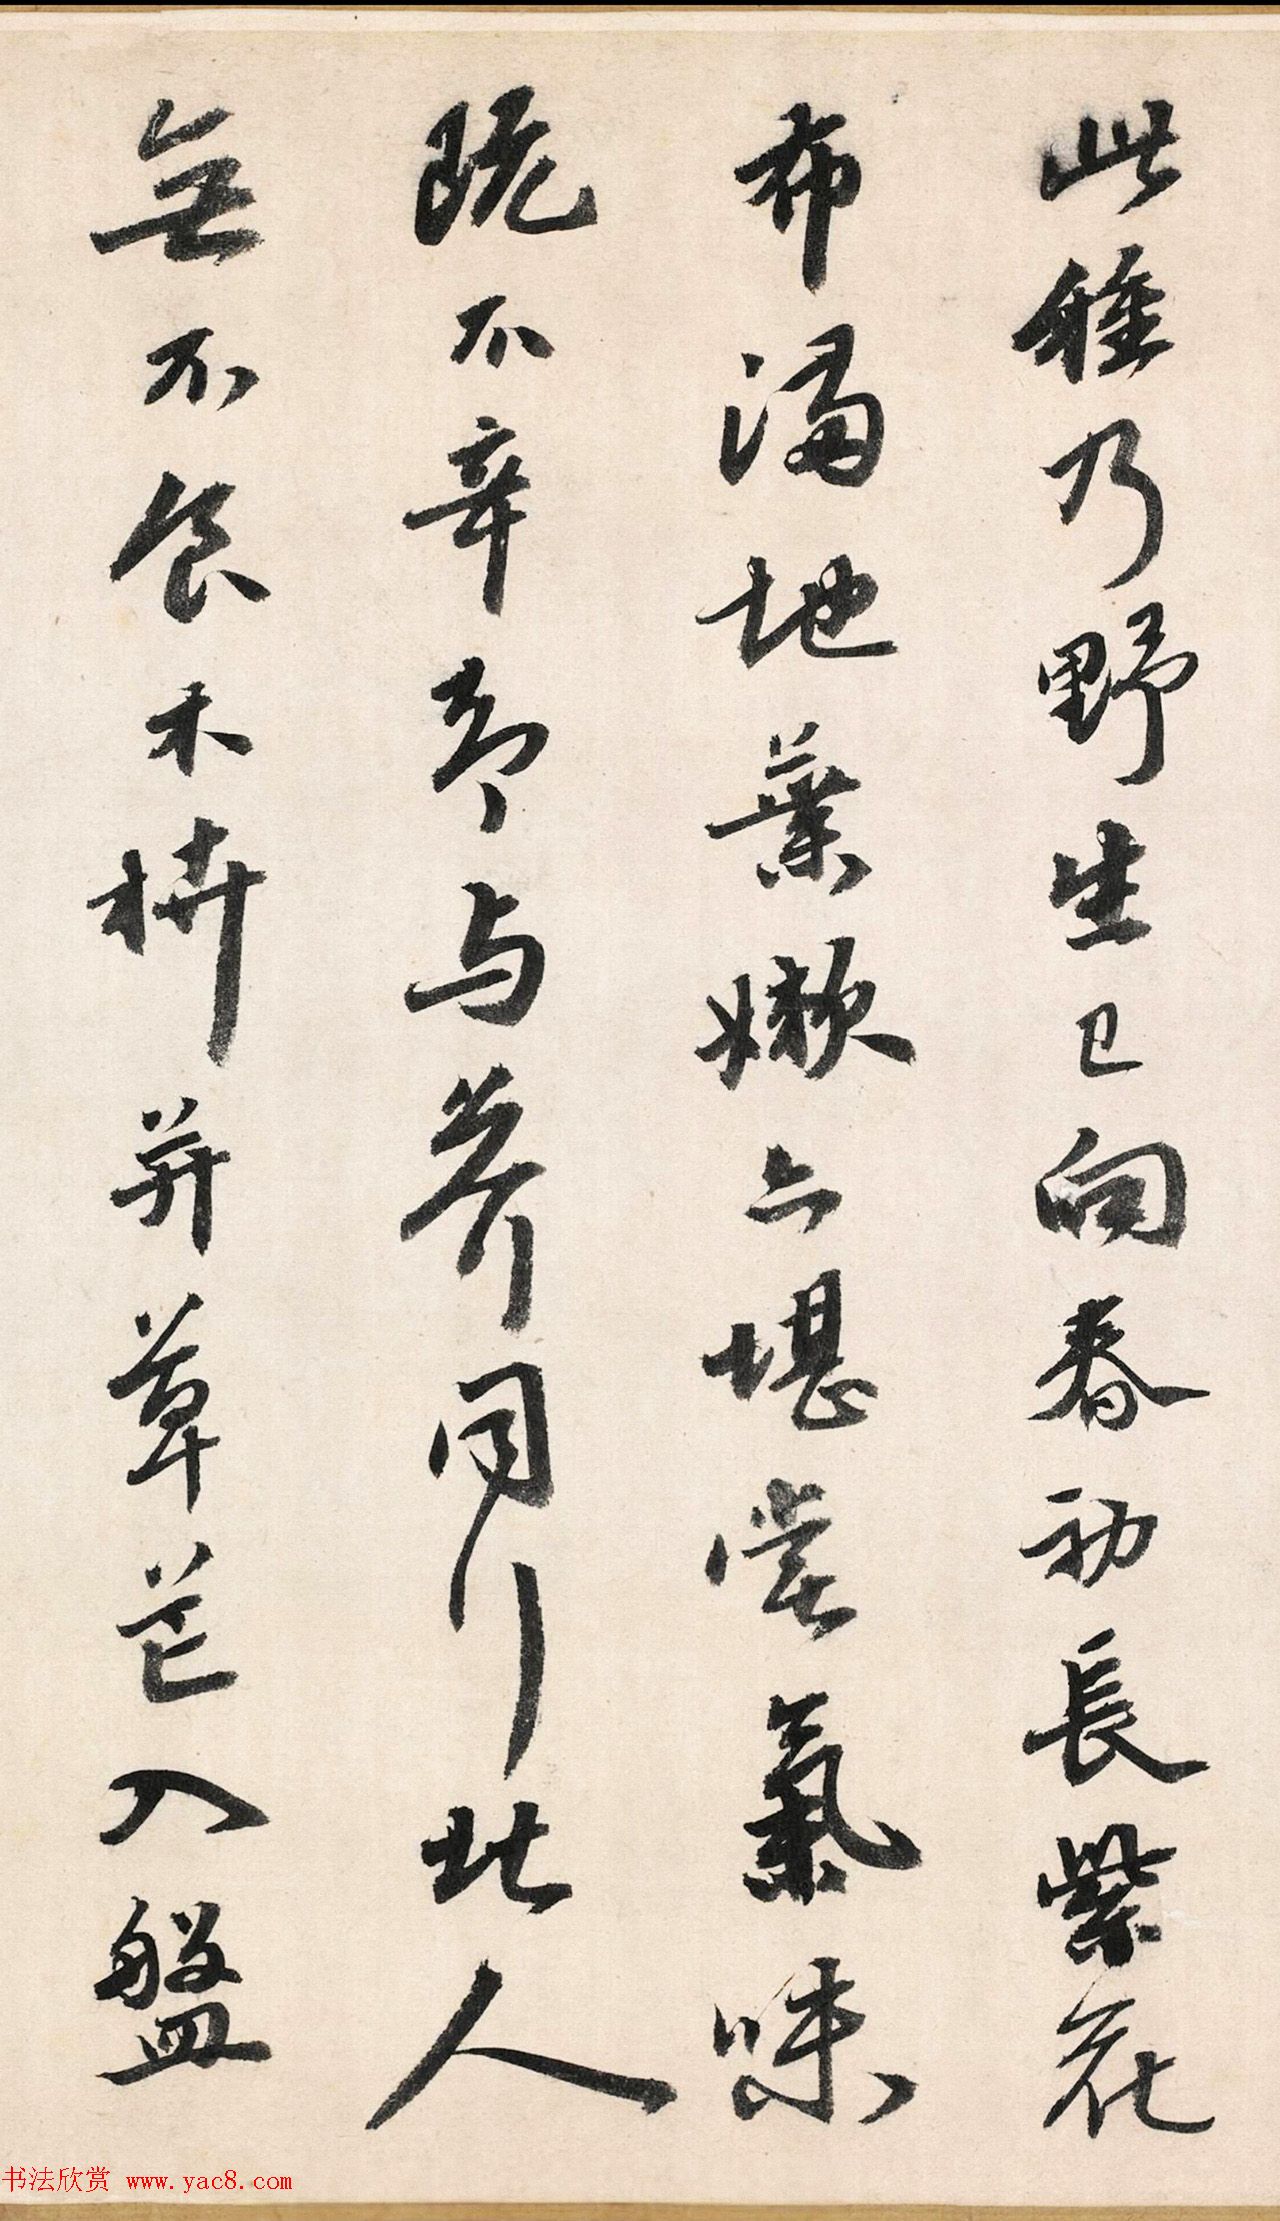 此種乃野生已向春初長紫花
布滿地葉嫩亦堪嘗氣味
既不辛却与芥同行北人
無不食木栟并草芒入盤
书法欣赏 www.yac8.com